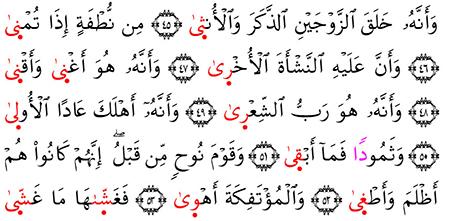 وَأَنَّهُۥ خَلَقَ ٱلزَّوْجَيْنِ ٱلذَّكَرَ وَٱلْأُنثَىٰ ﴿٤٥﴾ مِن نُّطْفَةٍ إِذَا تُمْنَىٰ
﴿٤٦﴾ وَأَنَّ عَلَيْهِ ٱلنَّشْأَةَ ٱلْأُخْرَىٰ ﴿٤٧﴾ وَأَنَّهُۥ هُوَ أَغْنَىٰ وَأَقْنَىٰ
﴿٤٨﴾ وَأَنَّهُۥ هُوَ رَبُّ ٱلشِّعْرَىٰ ﴿٤٩﴾ وَأَنَّهُۥٓ أَهْلَكَ عَادًا ٱلْأُولَىٰ
﴿٥٠﴾ وَثَمُودَا۟ فَمَآ أَبْقَىٰ ﴿٥١﴾ وَقَوْمَ نُوحٍ مِّن قَبْلُ ۖ إِنَّهُمْ كَانُوا۟ هُمْ
أَظْلَمَ وَأَطْغَىٰ ﴿٥٢﴾ وَٱلْمُؤْتَفِكَةَ أَهْوَىٰ ﴿٥٣﴾ فَغَشَّىٰهَا مَا غَشَّىٰ